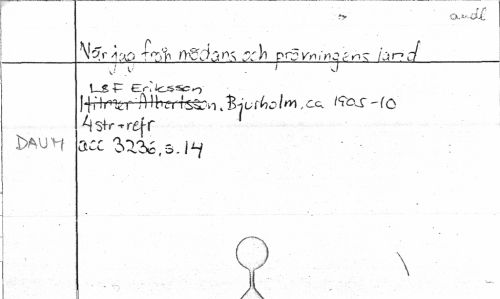 andl
När jag från mödans och prövningens land
L&F Eriksson
Hilmer Albertsson, Bjurholm, ca 1905-10
4 str + refr
DAUM acc 3236, s. 14